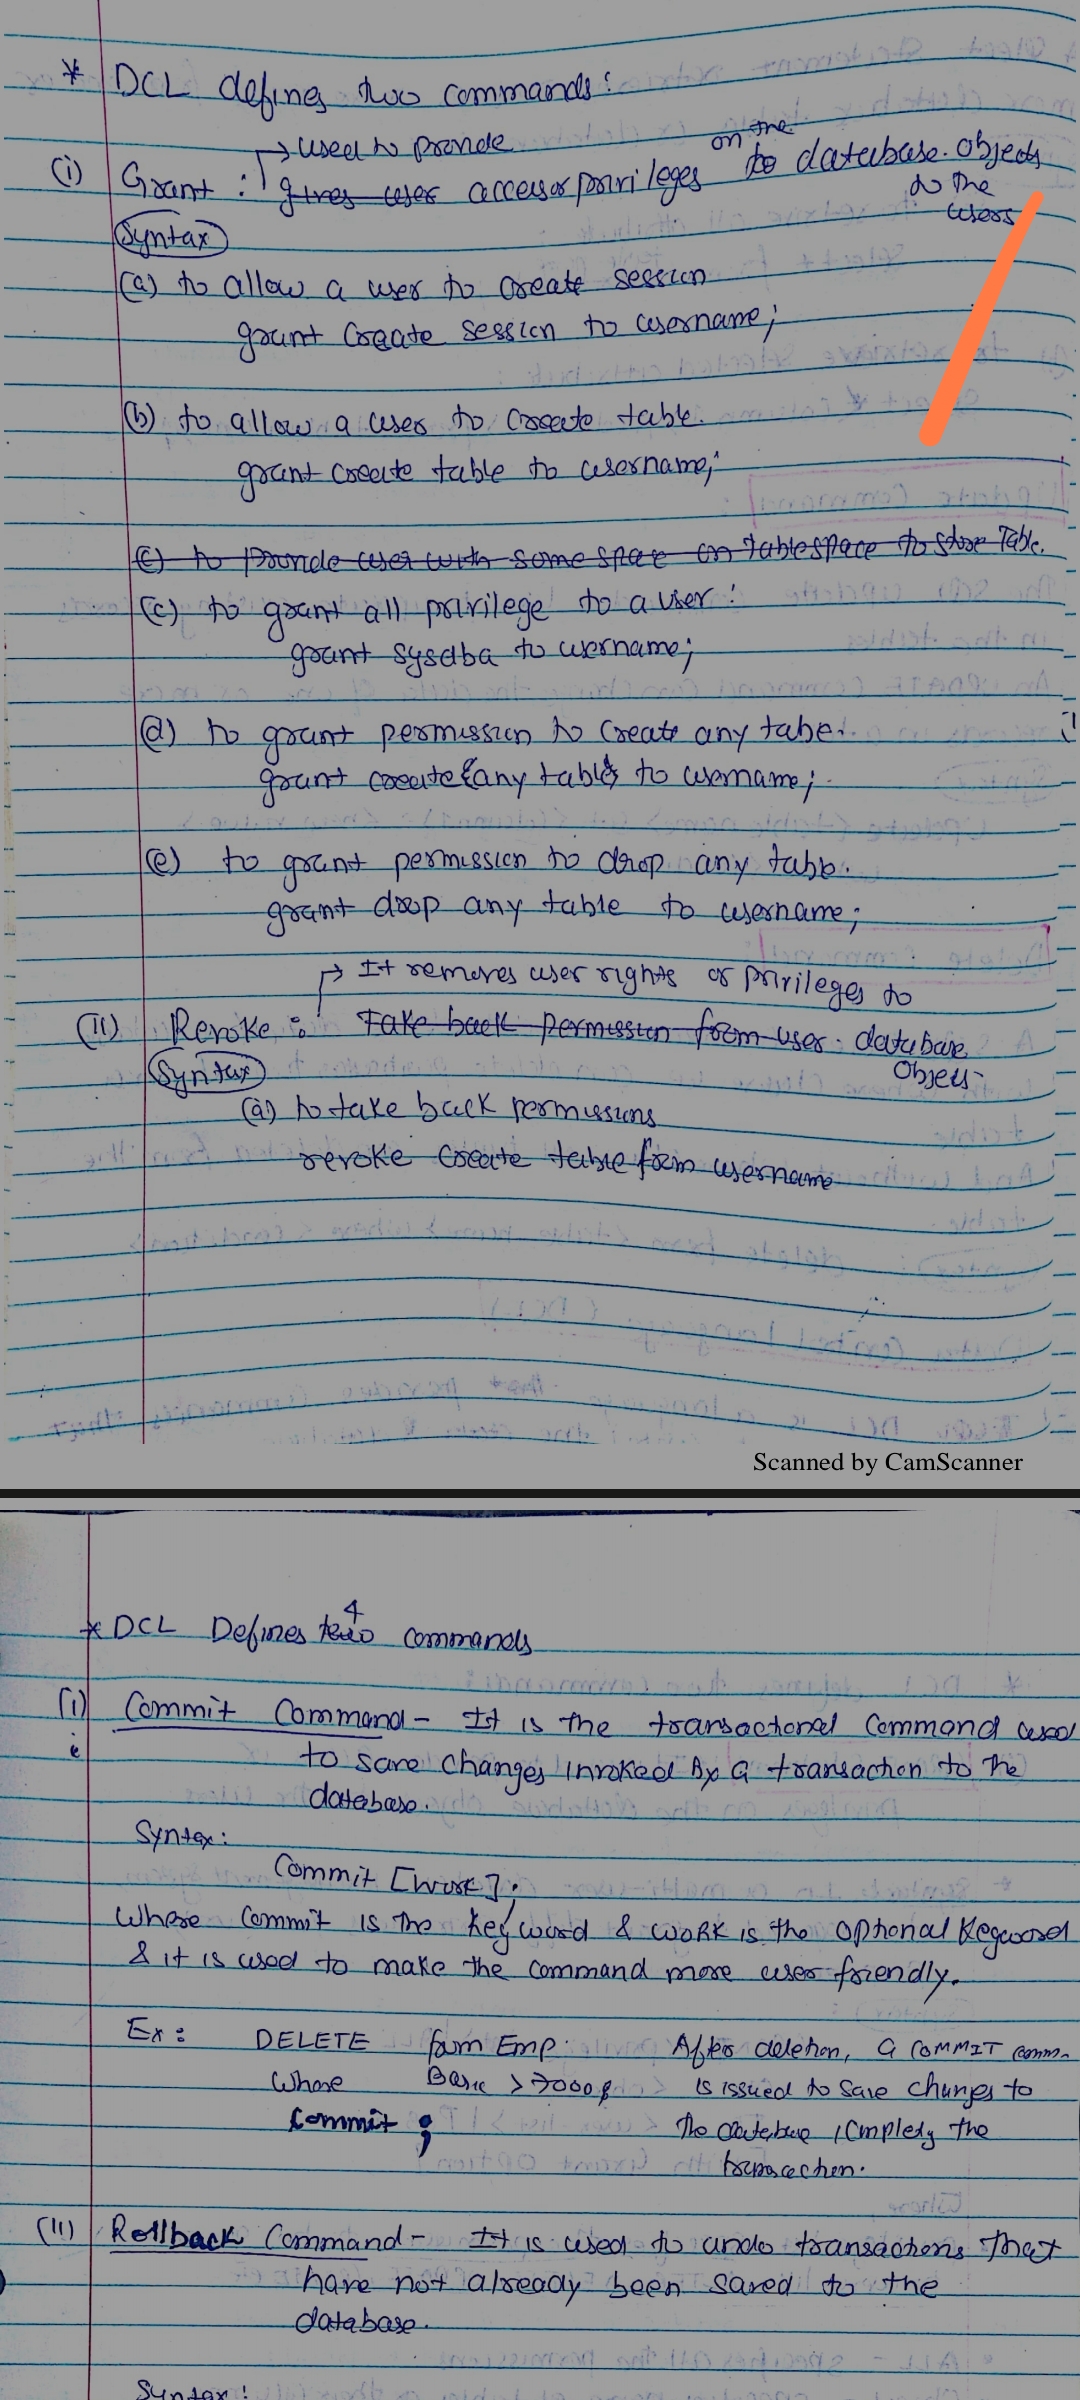 * DCL defines two commands:
→ used to provide
(i) Grant : gives user access or privileges on the to database objects
to the
users
Syntax
(a) to allow a user to create session
grant create session to username;
(b) to allow a user to create table.
grant create table to username;
(c) to provide user with some space on tablespace to store Table.
(c) to grant all privilege to a user:
grant sysdba to username;
(d) to grant permission to create any tabe.
grant create any table to username;
(e) to grant permission to drop any table.
grant drop any table to username;
→ It removes user rights or privileges to
(ii) Revoke : Take back permission from user. database
objects
Syntax
(a) to take back permissions
revoke create table from username
Scanned by CamScanner
* DCL Defines two 4 commands
(i) Commit Command - It is the transactional command used
to save changes invoked by a transaction to the
database.
Syntax:
Commit [work];
Where commit is the keyword & WORK is the optional keyword
& it is used to make the command more user friendly.
Ex: DELETE from Emp. After deletion, a COMMIT comm.
Where Basic > 7000; is issued to save changes to
Commit ; the database, the
transaction.
(ii) Rollback Command - It is used to undo transactions that
have not already been saved to the
database.
Syntax: